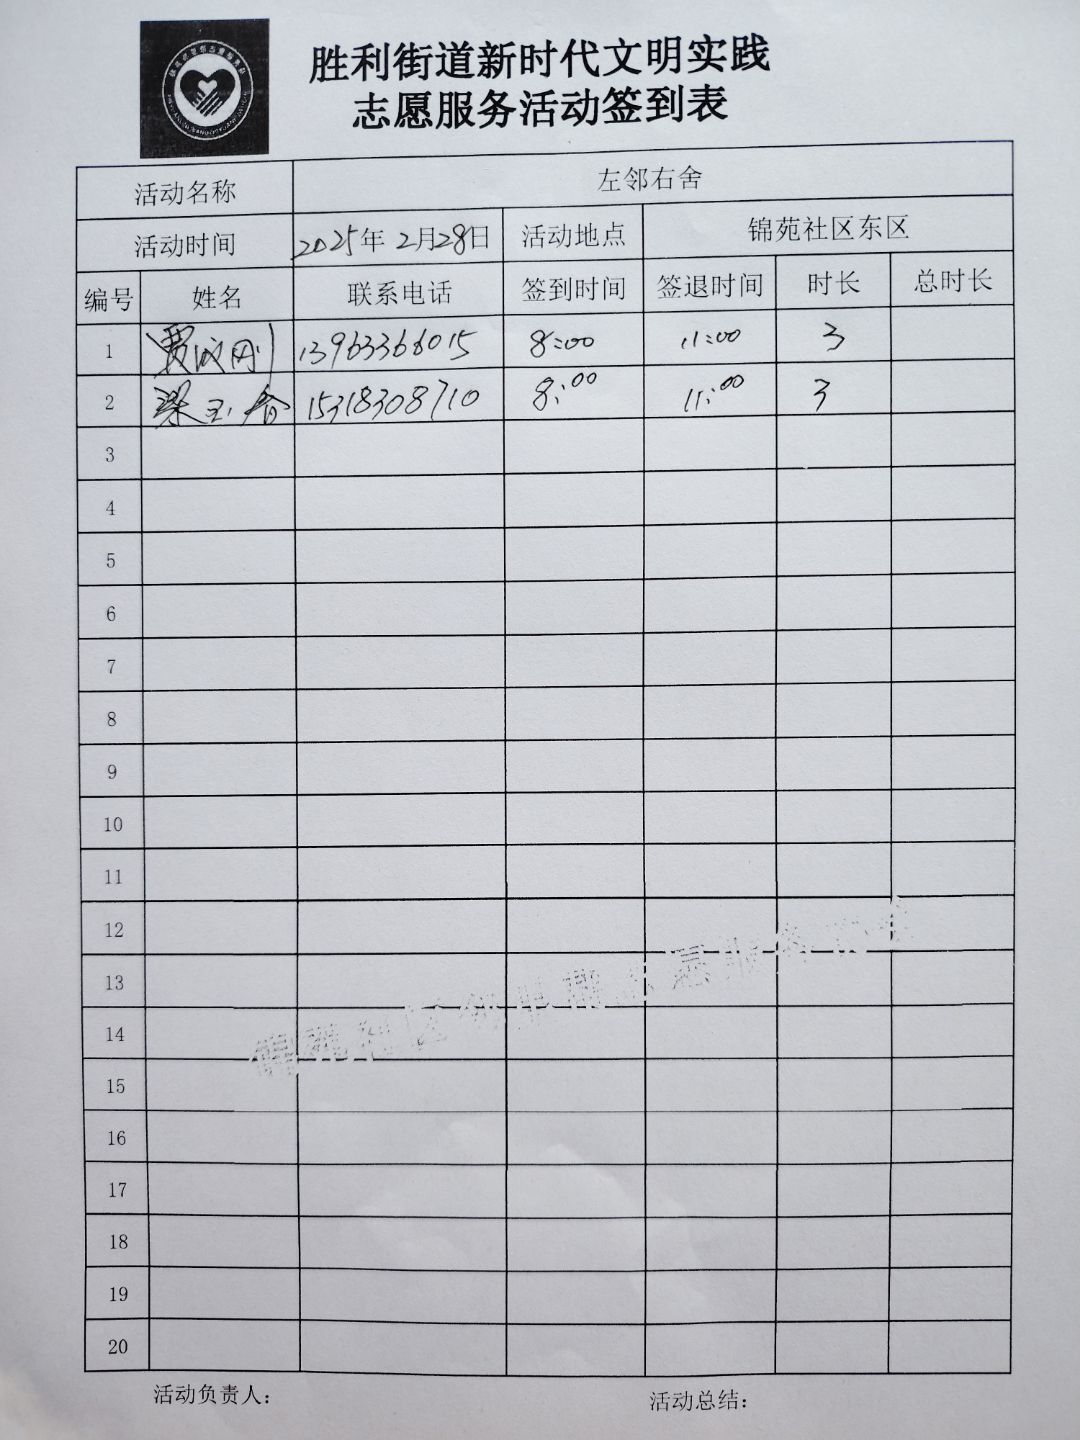 胜利街道新时代文明实践
志愿服务活动签到表
活动名称 左邻右舍
活动时间 2025年 2月28日 活动地点 锦苑社区东区
编号 姓名 联系电话 签到时间 签退时间 时长 总时长
1 贾 刚 13963366015 8:00 11:00 3
2 梁玉香 15318308710 8:00 11:00 3
3
4
5
6
7
8
9
10
11
12
13
14
15
16
17
18
19
20
活动负责人: 活动总结: